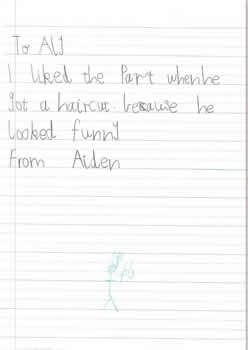 To Ali
I liked the Part when he
got a haircut. because he
looked funny
From Aiden